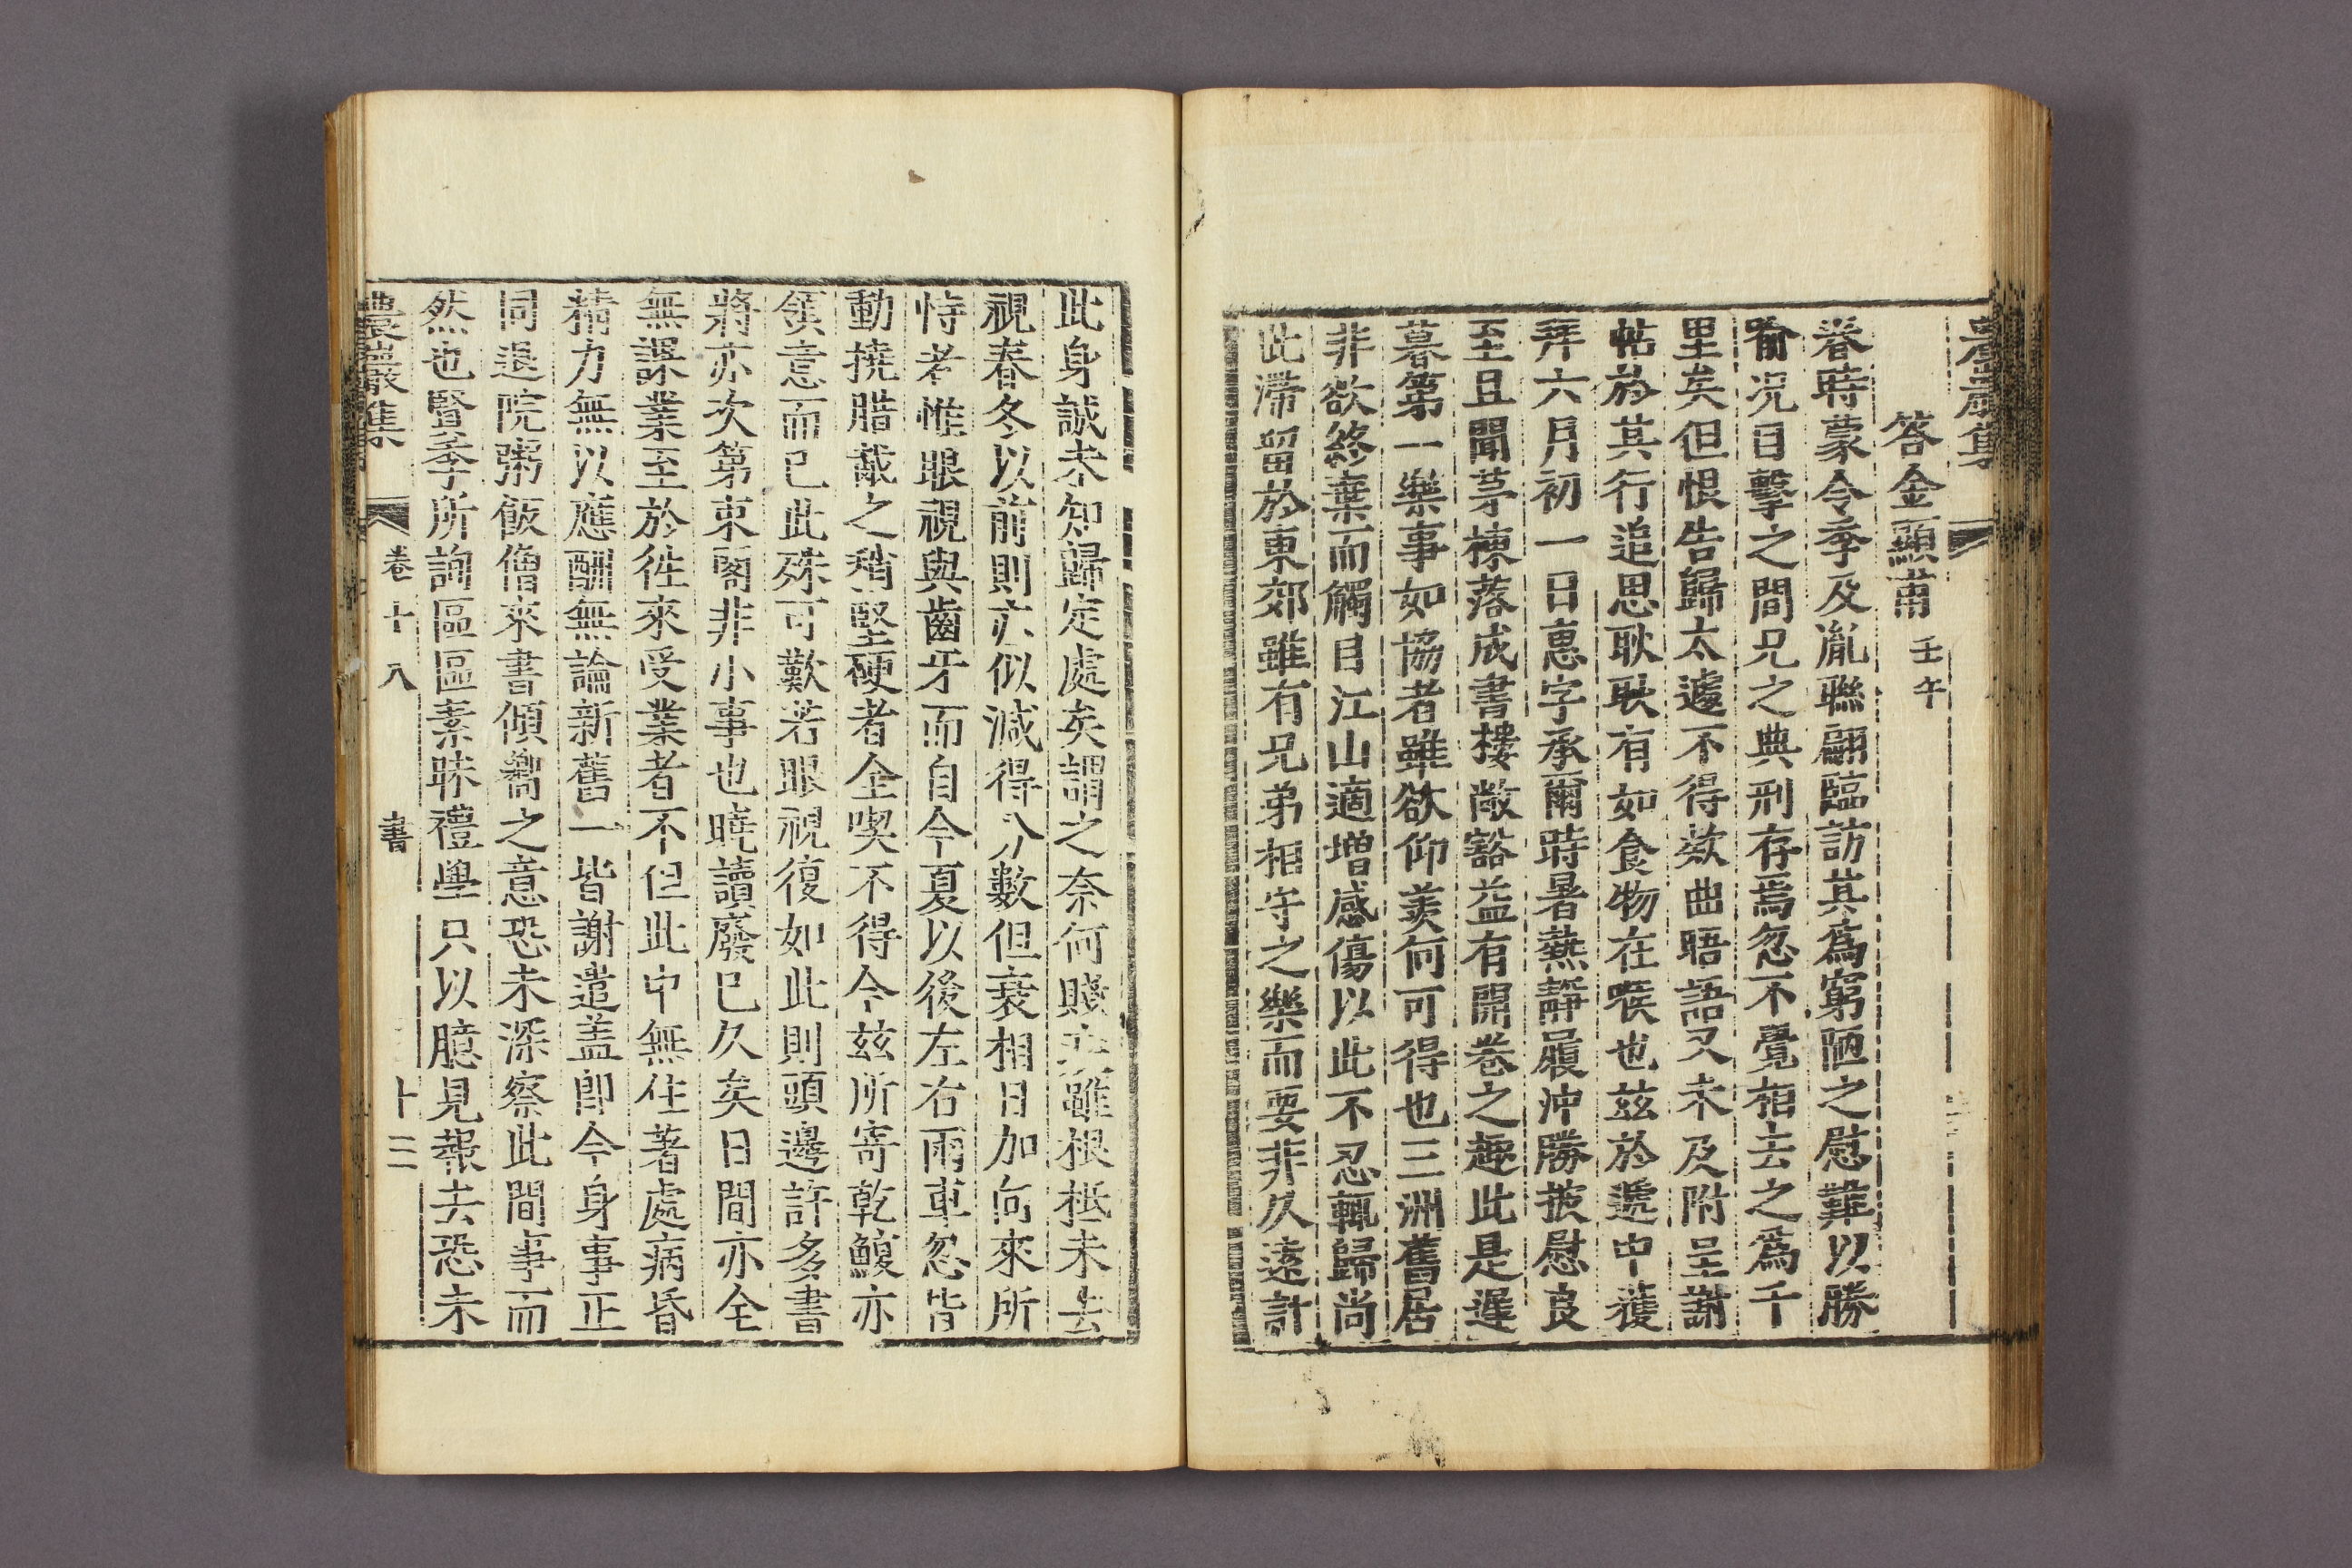 答金顯甫 壬午
眷時蒙令季及胤聯翩臨訪其爲窮陋之慰難以勝
喻况目擊之間兄之典刑存焉忽不覺相去之爲千
里矣但恨告歸太遽不得欵曲晤語又未及附呈謝
帖於其行追思耿耿有如食物在喉也玆於遞中獲
拜六月初一日惠字承爾時暑熱靜履沖勝披慰良
至且聞茅棟落成書樓敞豁益有開卷之趣此是遲
暮第一樂事如協者雖欲仰羨何可得也三洲舊居
非欲終棄而觸目江山適增感傷以此不忍輒歸尚
此滯留於東郊雖有兄弟相守之樂而要非久遠計
此身誠未知歸定處矣謂之奈何賤疾雖根柢未去
視春冬以前則亦似減得分數但衰相日加向來所
恃者惟眼視與齒牙而自今夏以後左右兩車忽皆
動撓腊胾之稍堅硬者全喫不得今玆所寄乾鰒亦
領意而已此殊可歎若眼視復如此則頭邊許多書
將亦次第束閣非小事也曉讀廢已久矣日間亦全
無課業至於徃來受業者不但此中無住著處病昏
精力無以應酬無論新舊一皆謝遣盖卽今身事正
同退院粥飯僧來書傾嚮之意恐未深察此間事而
然也賢季所詢區區素昧禮學只以臆見報去恐未
農巖集 卷十八 書 十三